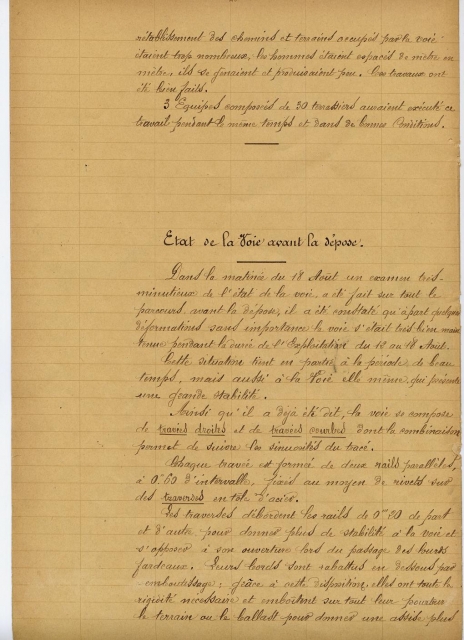 rétablissement des chemins et terrains occupés par la voie
étaient trop nombreux, les hommes étaient espacés de mètre en
mètre, ils se gênaient et produisaient peu. Ces travaux ont
été bien faits.
3 Equipes composées de 30 terrassiers auraient exécuté ce
travail pendant le même temps et dans de bonnes conditions.
Etat de la Voie avant la dépose.
Dans la matinée du 18 Août un examen très
minutieux de l'état de la voie a été fait sur tout le
parcours avant la dépose, il a été constaté qu'à part quelques
déformations sans importance la voie s'était très bien main
tenue pendant la durée de l'Exploitation du 12 au 18 Août.
Cette situation tient en partie à la période de beau
temps, mais aussi à la Voie elle même, qui présente
une grande stabilité.
Ainsi qu'il a déjà été dit, la voie se compose
de travées droites et de travées courbes dont la combinaison
permet de suivre les sinuosités du tracé.
Chaque travée est formée de deux rails parallèles,
à 0m60 d'intervalle, fixés au moyen de rivets sur
des traverses en tôle d'acier.
Les traverses débordent les rails de 0m20 de part
et d'autre pour donner plus de stabilité à la voie et
s'opposer à son ouverture lors du passage des lourds
fardeaux. Leurs bords sont rabattus en dessous par
emboutissage; grâce à cette disposition, elles ont toute la
rigidité nécessaire et emboîtent sur tout leur pourtour
le terrain ou le ballast pour donner une assise plus